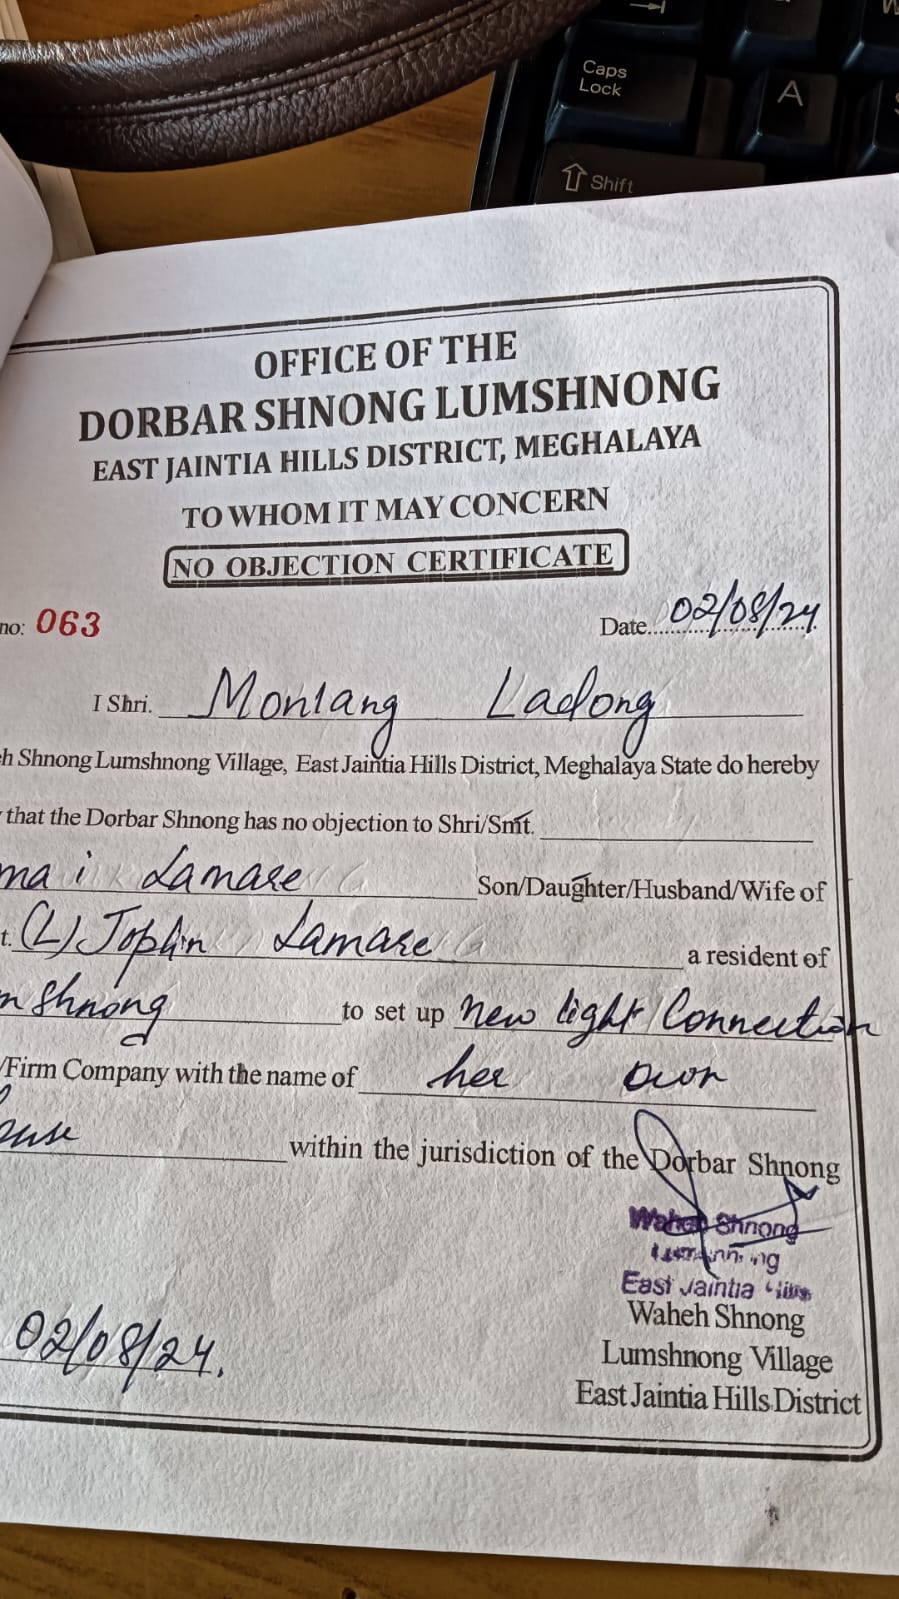 Caps
Lock
A
Shift
OFFICE OF THE
DORBAR SHNONG LUMSHNONG
EAST JAINTIA HILLS DISTRICT, MEGHALAYA
TO WHOM IT MAY CONCERN
NO OBJECTION CERTIFICATE
no: 063 Date.....02/08/24
I Shri. Monlang Ladong
h Shnong Lumshnong Village, East Jaintia Hills District, Meghalaya State do hereby
that the Dorbar Shnong has no objection to Shri/Smt.
ma i Lamare Son/Daughter/Husband/Wife of
t. (L) Joplin Lamare a resident of
mshnong to set up new light Connection
/Firm Company with the name of her own
ouse within the jurisdiction of the Dorbar Shnong
Waheh Shnong
East Jaintia Hills
Waheh Shnong
02/08/24.
Lumshnong Village
East Jaintia Hills District